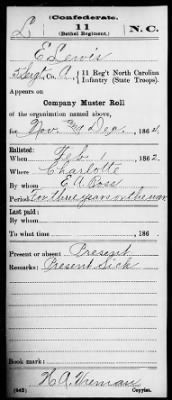 (Confederate.)
L 11 N. C.
(Bethel Regiment).
E Lewis
5 Sergt, Co. A, 11 Reg't North Carolina
Infantry (State Troops).
Appears on
Company Muster Roll
of the organization named above,
for Nov & Dec, 1864.
Enlisted:
When Feb 1, 1862.
Where Charlotte
By whom E A Ross
Period For three years or the war
Last paid:
By whom
To what time , 186 .
Present or absent Present
Remarks: Present Sick
Book mark:
(642) Copyist.